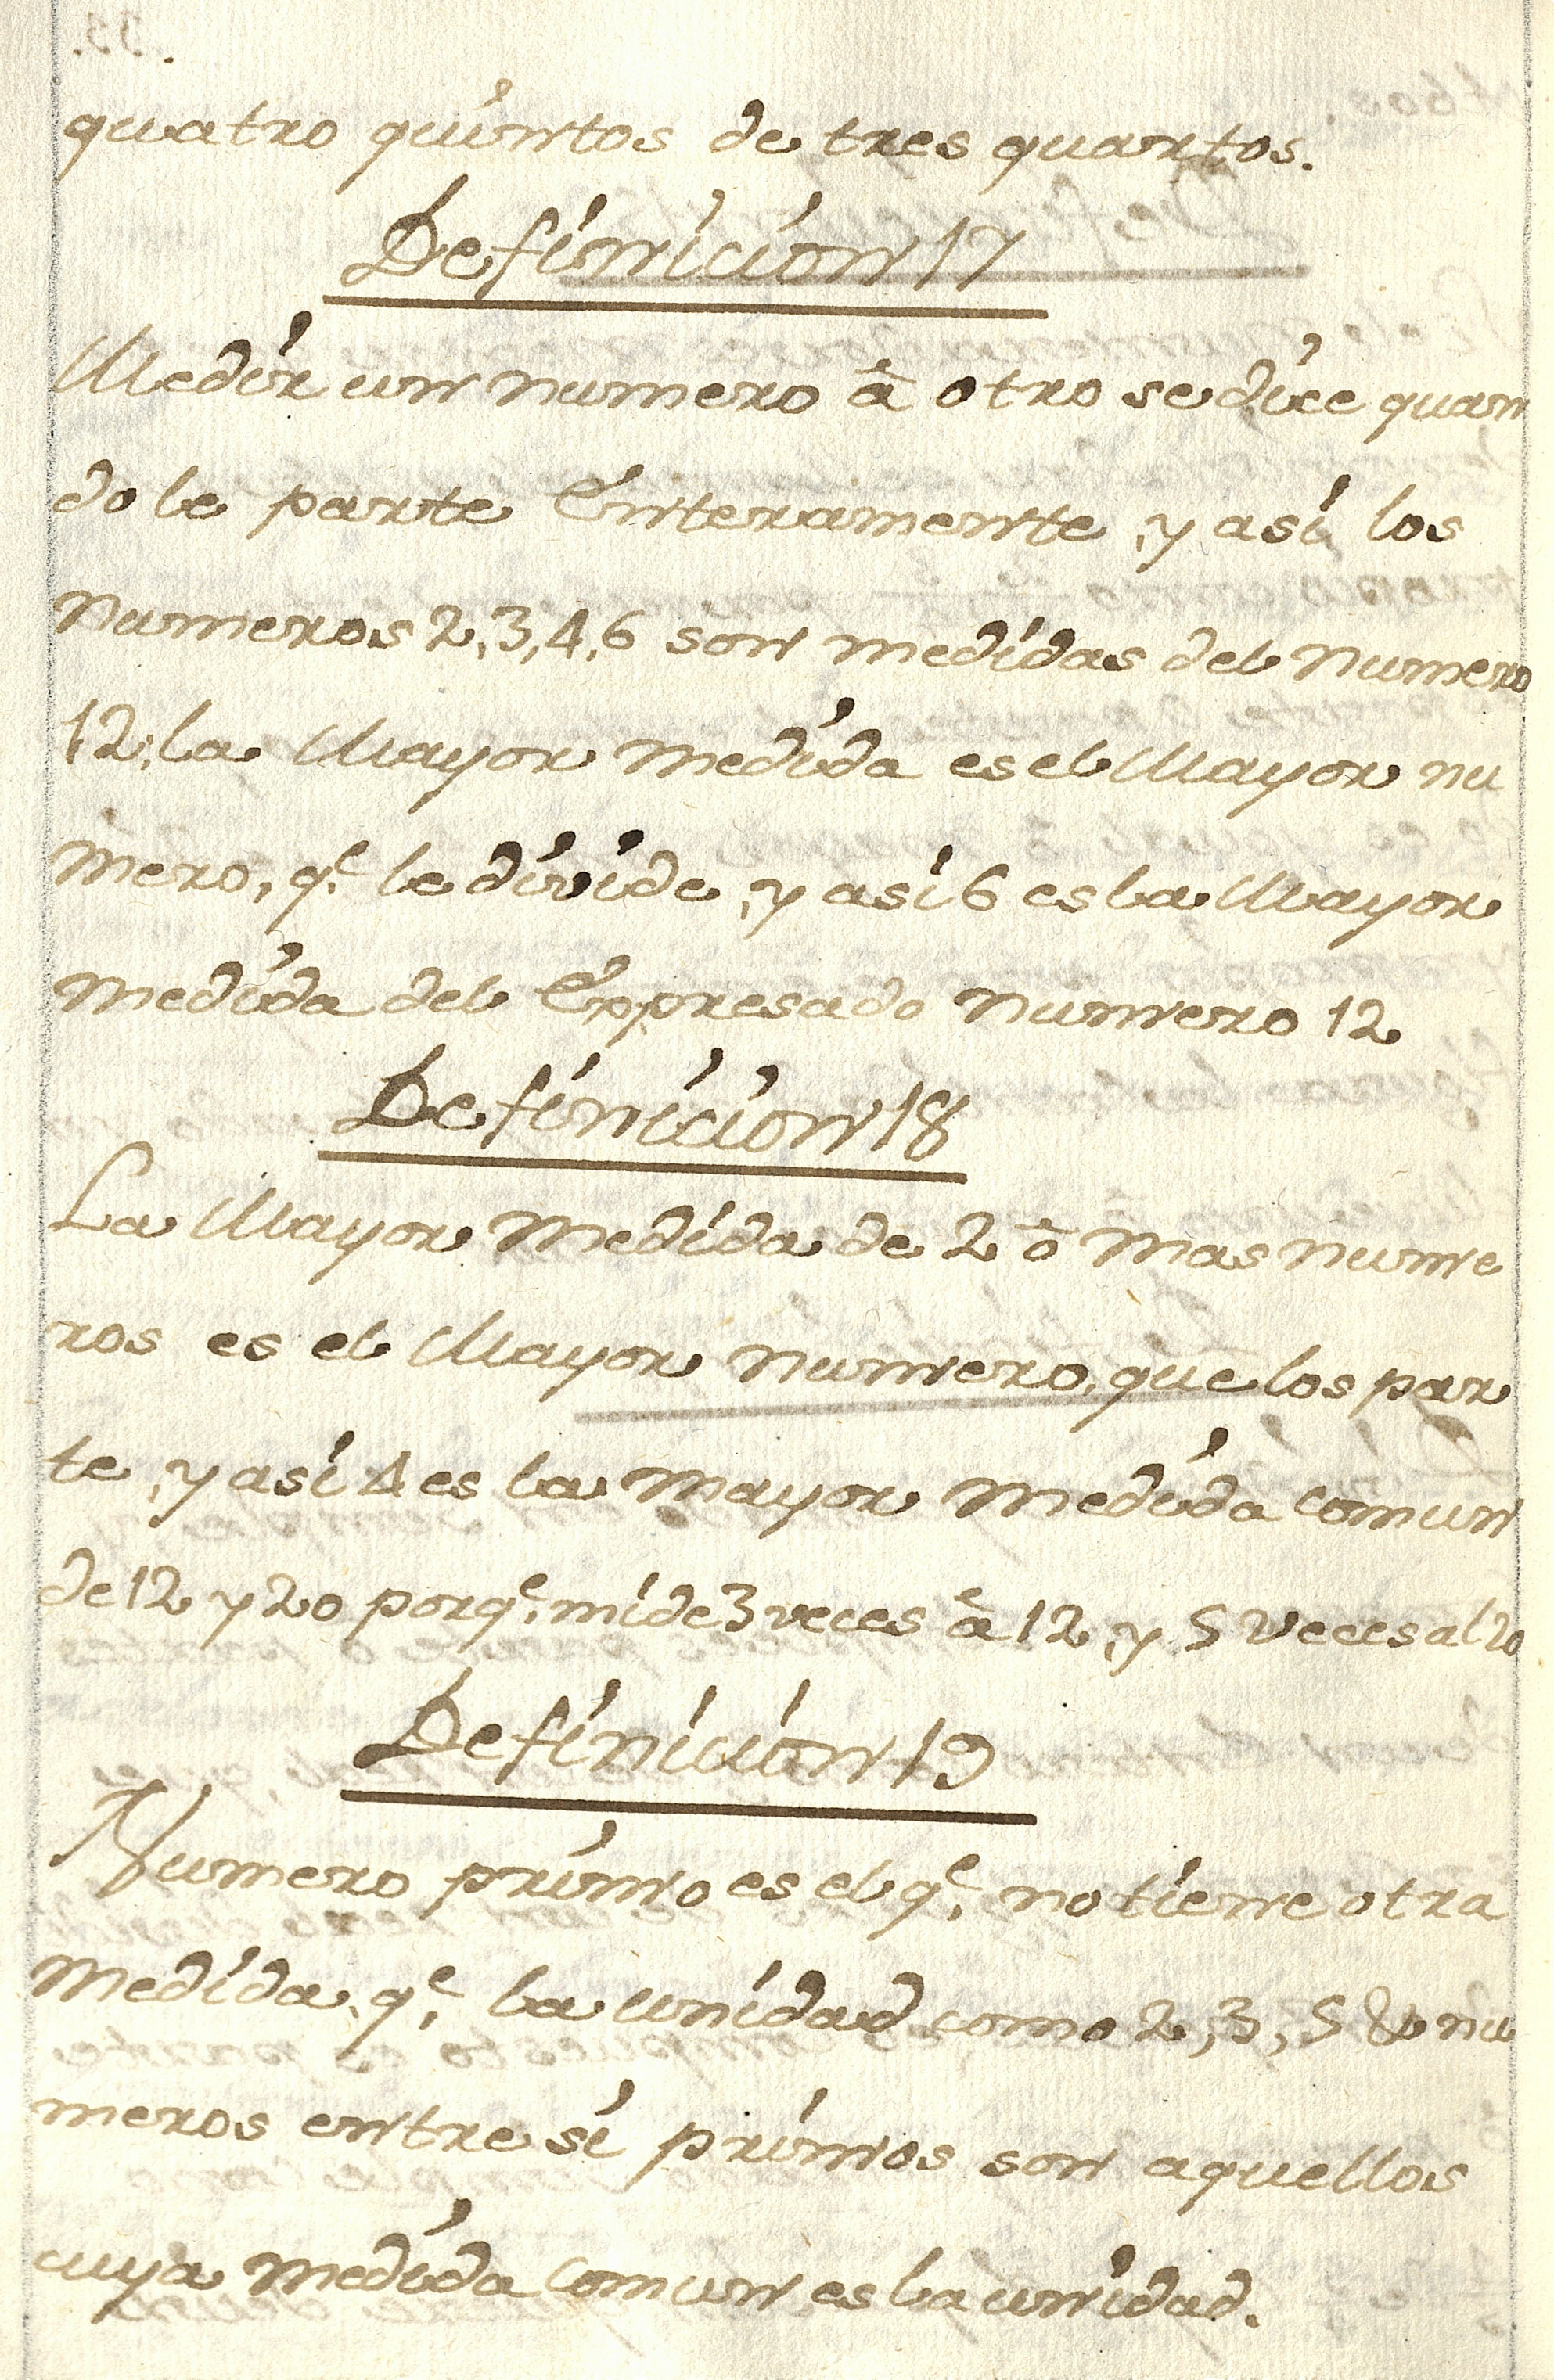 quatro quintos de tres quartos.
Definicion 17
Medir un numero â otro se dice quan
do le parte Enteramente, y asi los
numeros 2,3,4,6 son medidas del numero
12, la Mayor medida es el Mayor nu
mero, q.e le divide, y asi 6 es la Mayor
medida del Expresado numero 12
Definicion 18
La Mayor Medida de 2 ô mas nume
ros es el Mayor numero, que los par
te, y asi 4 es la mayor medida comun
de 12 y 20 porq.e mide 3 veces â 12, y 5 veces al 20
Definicion 19
Numero primo es el q.e no tiene otra
medida, q.e la unidad como 2,3,5 & nu
meros entre si primos son aquellos
cuya medida comun es la unidad.